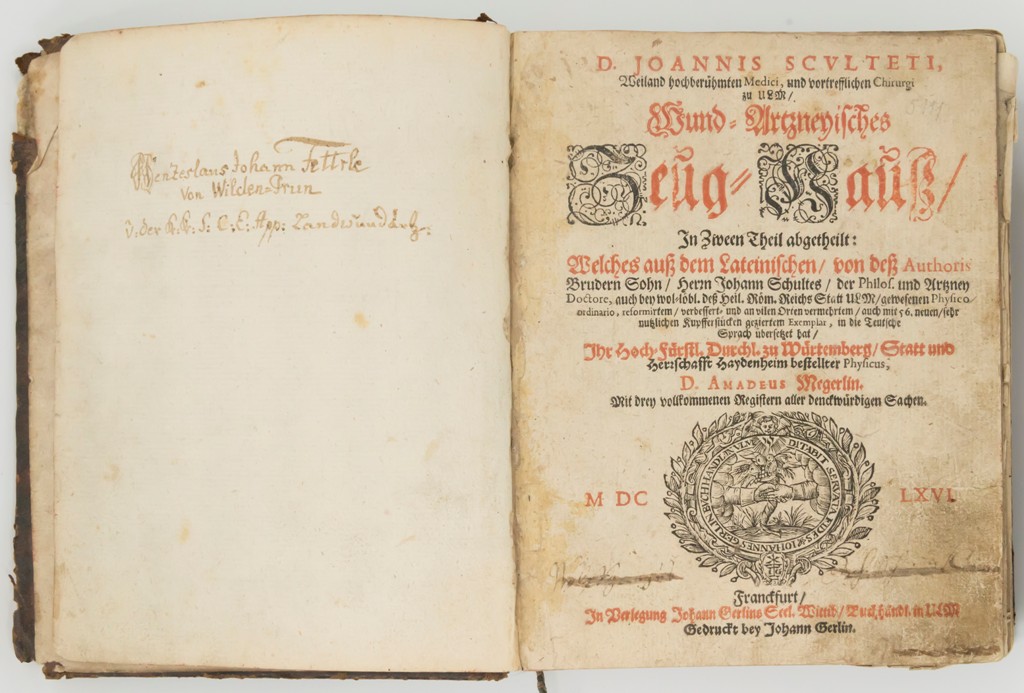 Wentzeslaus Johann Fettrle
von Wilden-Prun
v. der K. K. S: C: E: App: Landwundartz.
D. JOANNIS SCVLTETI,
Weiland hochberühmten Medici, und vortrefflichen Chirurgi
zu ULM/
Wund-Artzneyisches
Zeug-Hauß/
In Zween Theil abgetheilt:
Welches auß dem Lateinischen/ von deß Authoris
Brudern Sohn/ Herrn Johann Schultes/ der Philos. und Artzney
Doctore, auch bey wol-löbl. deß Heil. Röm. Reichs Statt ULM/ gewesenen Physico
ordinario, reformirtem/ verbessert- und an vilen Orten vermehrtem/ auch mit 56. neuen/ sehr
nutzlichen Kupfferstücken geziertem Exemplar, in die Teutsche
Sprach übersetzet hat/
Ihr Hoch-Fürstl. Durchl. zu Würtemberg/ Statt und
Herrschafft Haydenheim bestellter Physicus,
D. AMADEUS Megerlin.
Mit drey vollkommenen Registern aller denckwürdigen Sachen.
DITABIT SERVATA FIDES
IOHANNES GERLIN BUCHHANDL. IN ULM
M DC LXVI.
Franckfurt/
In Verlegung Johann Gerlins Seel. Wittib/ Buchhändl. in ULM
Gedruckt bey Johann Gerlin.